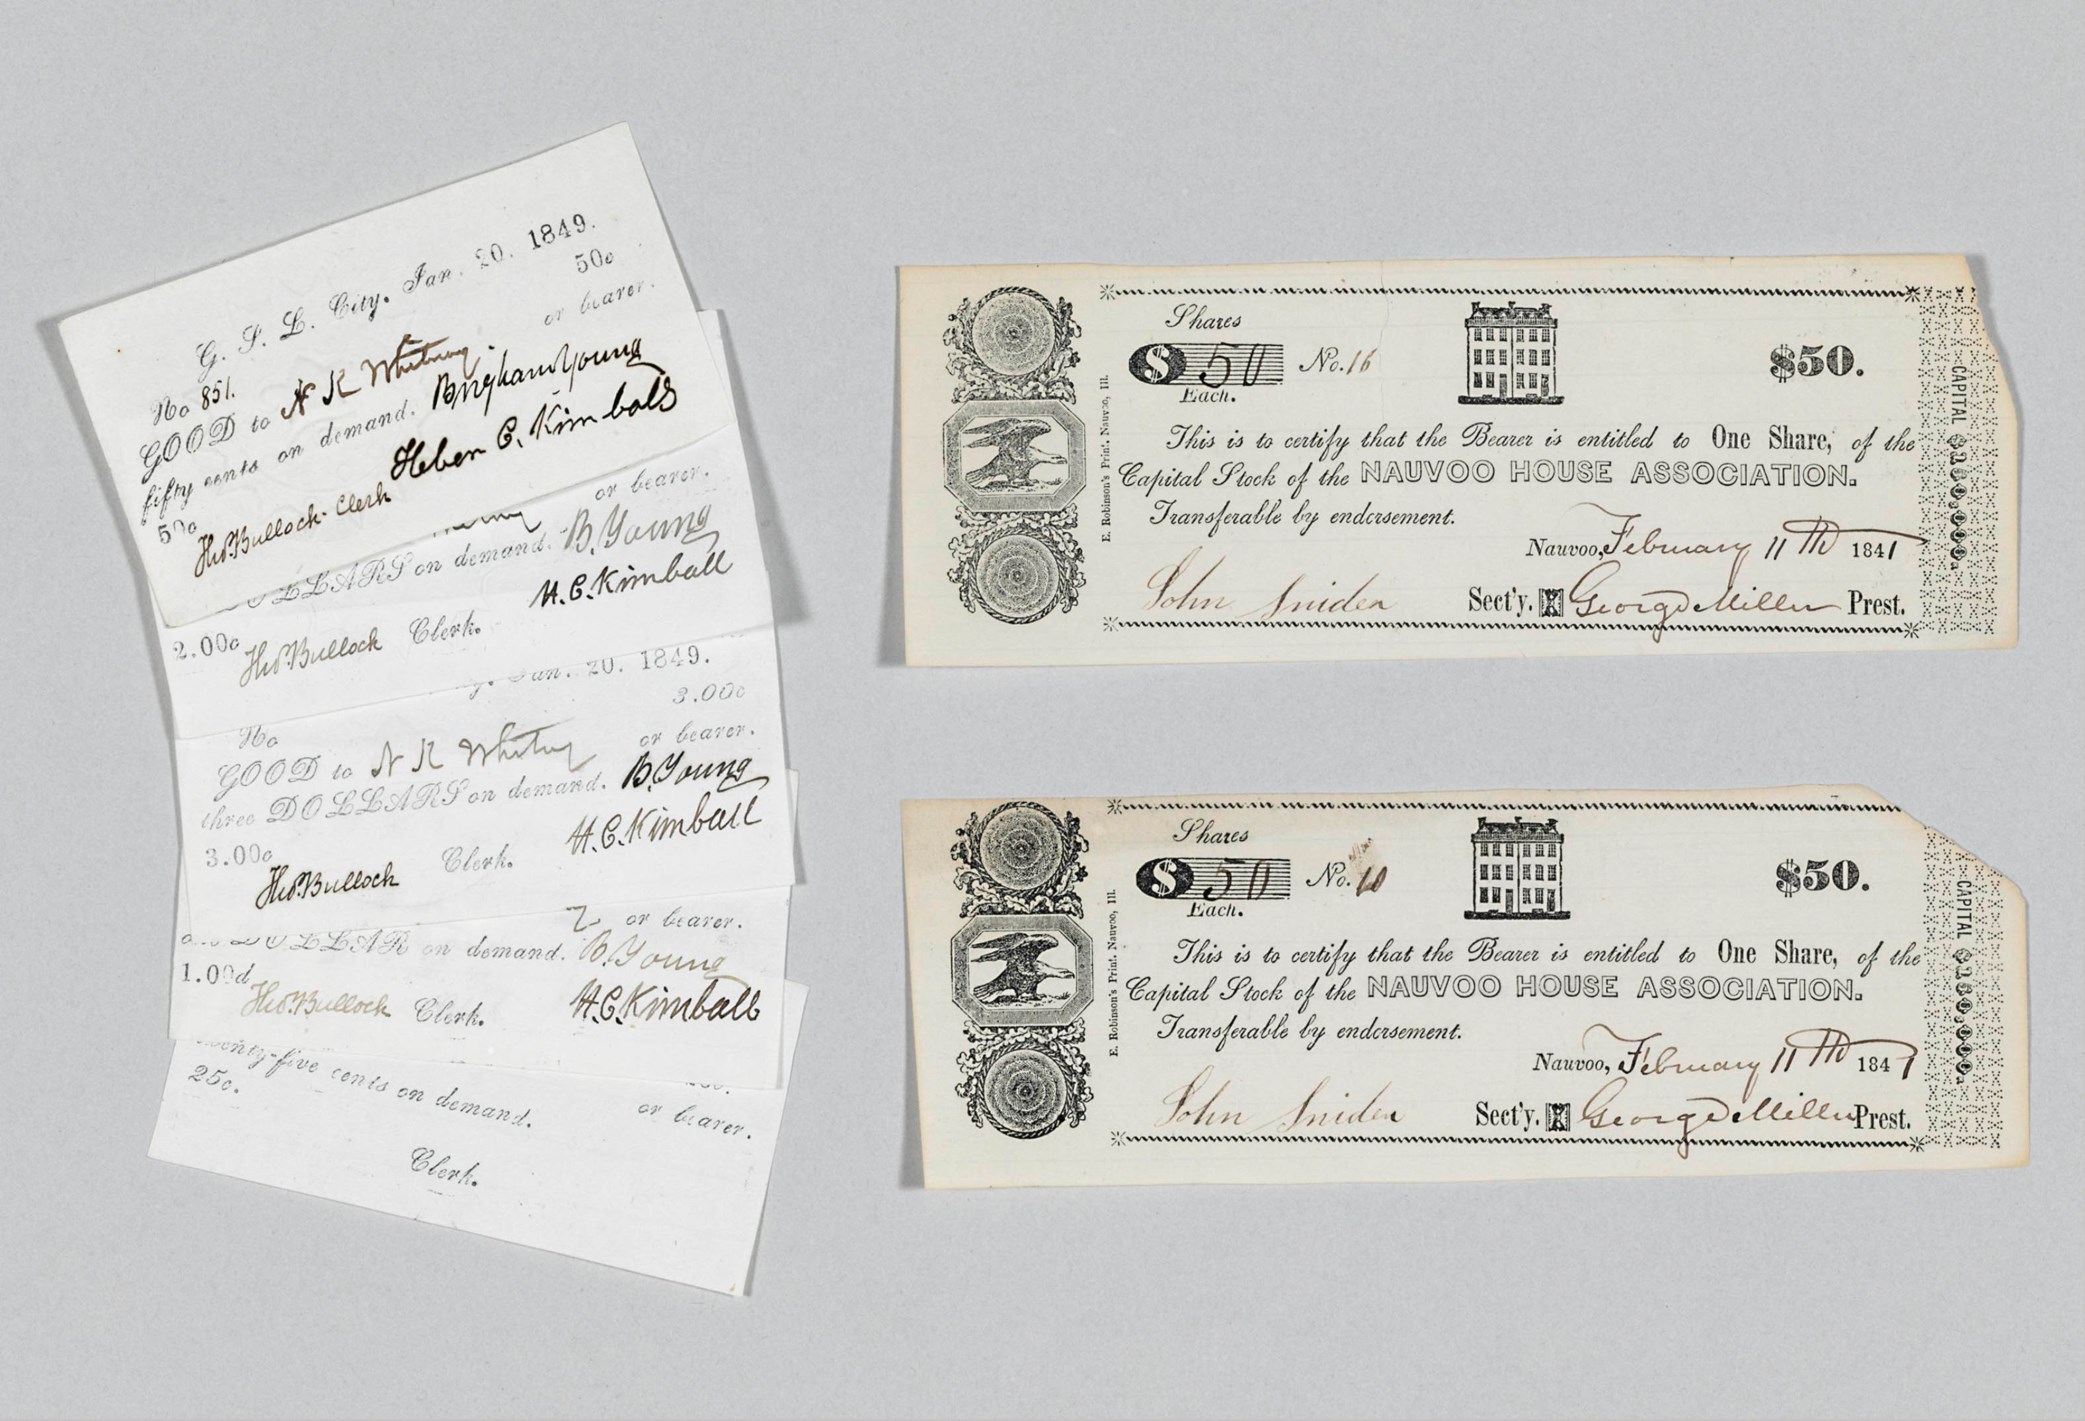 G. S. L. City. Jan. 20. 1849.
No 851. 50c
GOOD to N K Whitney or bearer.
fifty cents on demand. Brigham Young
50c Heber C. Kimball
Tho. Bullock. Clerk
or bearer.
DOLLARS on demand. B. Young
2.00c H. C. Kimball
Tho. Bullock Clerk.
Jan. 20. 1849.
No 3.00c
GOOD to N K Whitney or bearer.
three DOLLARS on demand. B. Young
3.00c H. C. Kimball
Tho. Bullock Clerk.
or bearer.
DOLLAR on demand. B. Young
1.00d
Tho. Bullock Clerk. H. C. Kimball
twenty-five cents on demand.
25c. or bearer.
Clerk.
E. Robinson's Print. Nauvoo, Ill.
Shares
$ 50 No. 16 $50.
Each.
This is to certify that the Bearer is entitled to One Share, of the
Capital Stock of the NAUVOO HOUSE ASSOCIATION.
Transferable by endorsement.
Nauvoo, February 11th 1841
John Snider Sect'y. George Miller Prest.
CAPITAL $150,000.
E. Robinson's Print. Nauvoo, Ill.
Shares
$ 50 No. 10 $50.
Each.
This is to certify that the Bearer is entitled to One Share, of the
Capital Stock of the NAUVOO HOUSE ASSOCIATION.
Transferable by endorsement.
Nauvoo, February 11th 1841
John Snider Sect'y. George Miller Prest.
CAPITAL $150,000.